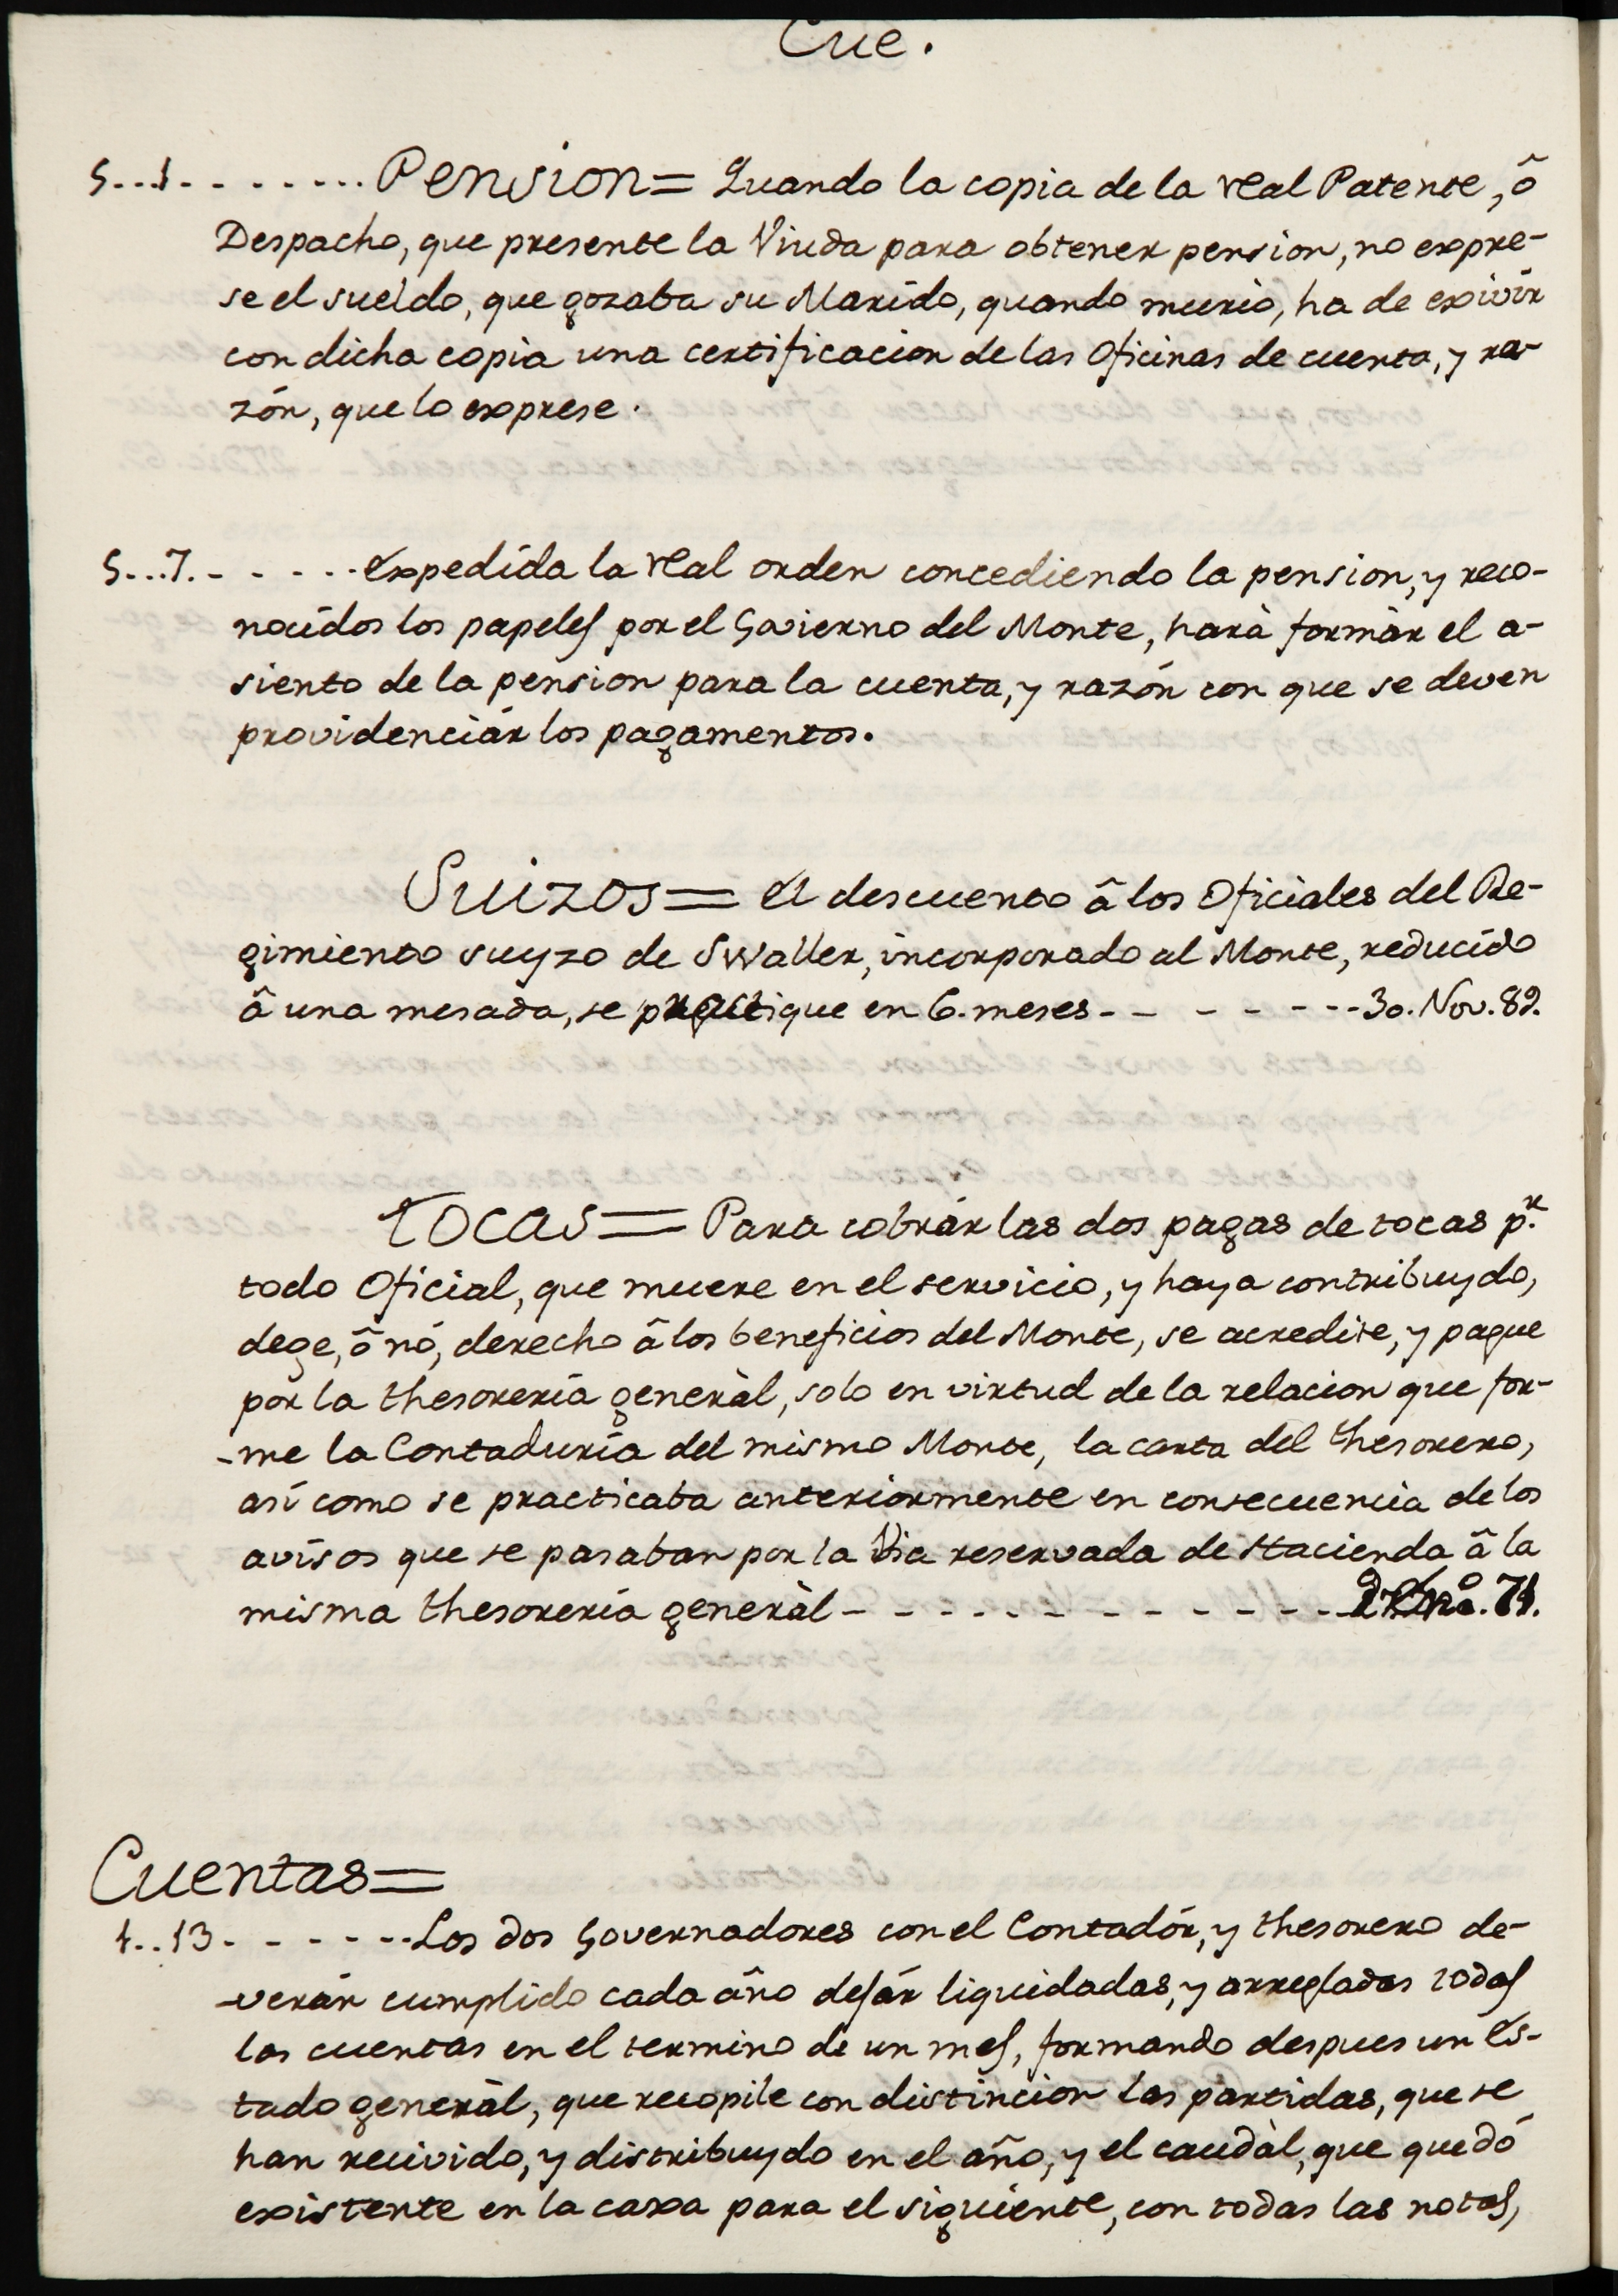 Cue.
5...1- - - - ....Pension= Quando la copia de la real Patente, ô
Despacho, que presente la Viuda para obtener pension, no expre-
se el sueldo, que gozaba su Marido, quando murio, ha de exivir
con dicha copia una certificacion de las Oficinas de cuenta, y ra-
zón, que lo exprese.
5...7.- - - - - Expedida la real orden concediendo la pension, y reco-
nocidos los papeles por el Govierno del Monte, harà formàr el a-
siento de la pension para la cuenta, y razón con que se deven
providenciár los pagamentos.
Suizos= El descuento â los Oficiales del Re-
gimiento suyzo de SWaller, incorporado al Monte, reducido
â una mesada, se practique en 6. meses- - - - - - -30. Nov. 89.
Tocas= Para cobrár las dos pagas de tocas p.r
todo Oficial, que muere en el servicio, y haya contribuydo,
dege, ô nó, derecho â los beneficios del Monte, se acredite, y pague
por la thesorería generàl, solo en virtud de la relacion que for-
-me la Contaduría del mismo Monte, la carta del thesorero,
así como se practicaba anteriormente en consecuencia de los
avisos que se pasaban por la Via reservada de Hacienda â la
misma thesorería generàl- - - - - - - - - - - -
Cuentas=
1..13- - - - - -Los dos Governadores con el Contadór, y thesorero de-
-verán cumplido cada año dejár liquidadas, y arregladas todas
las cuentas en el termino de un mes, formando despues un Es-
tado generàl, que recopile con distincion las partidas, que se
han recivido, y distribuydo en el año, y el caudàl, que quedó
existente en la caxa para el siguiente, con todas las notas,